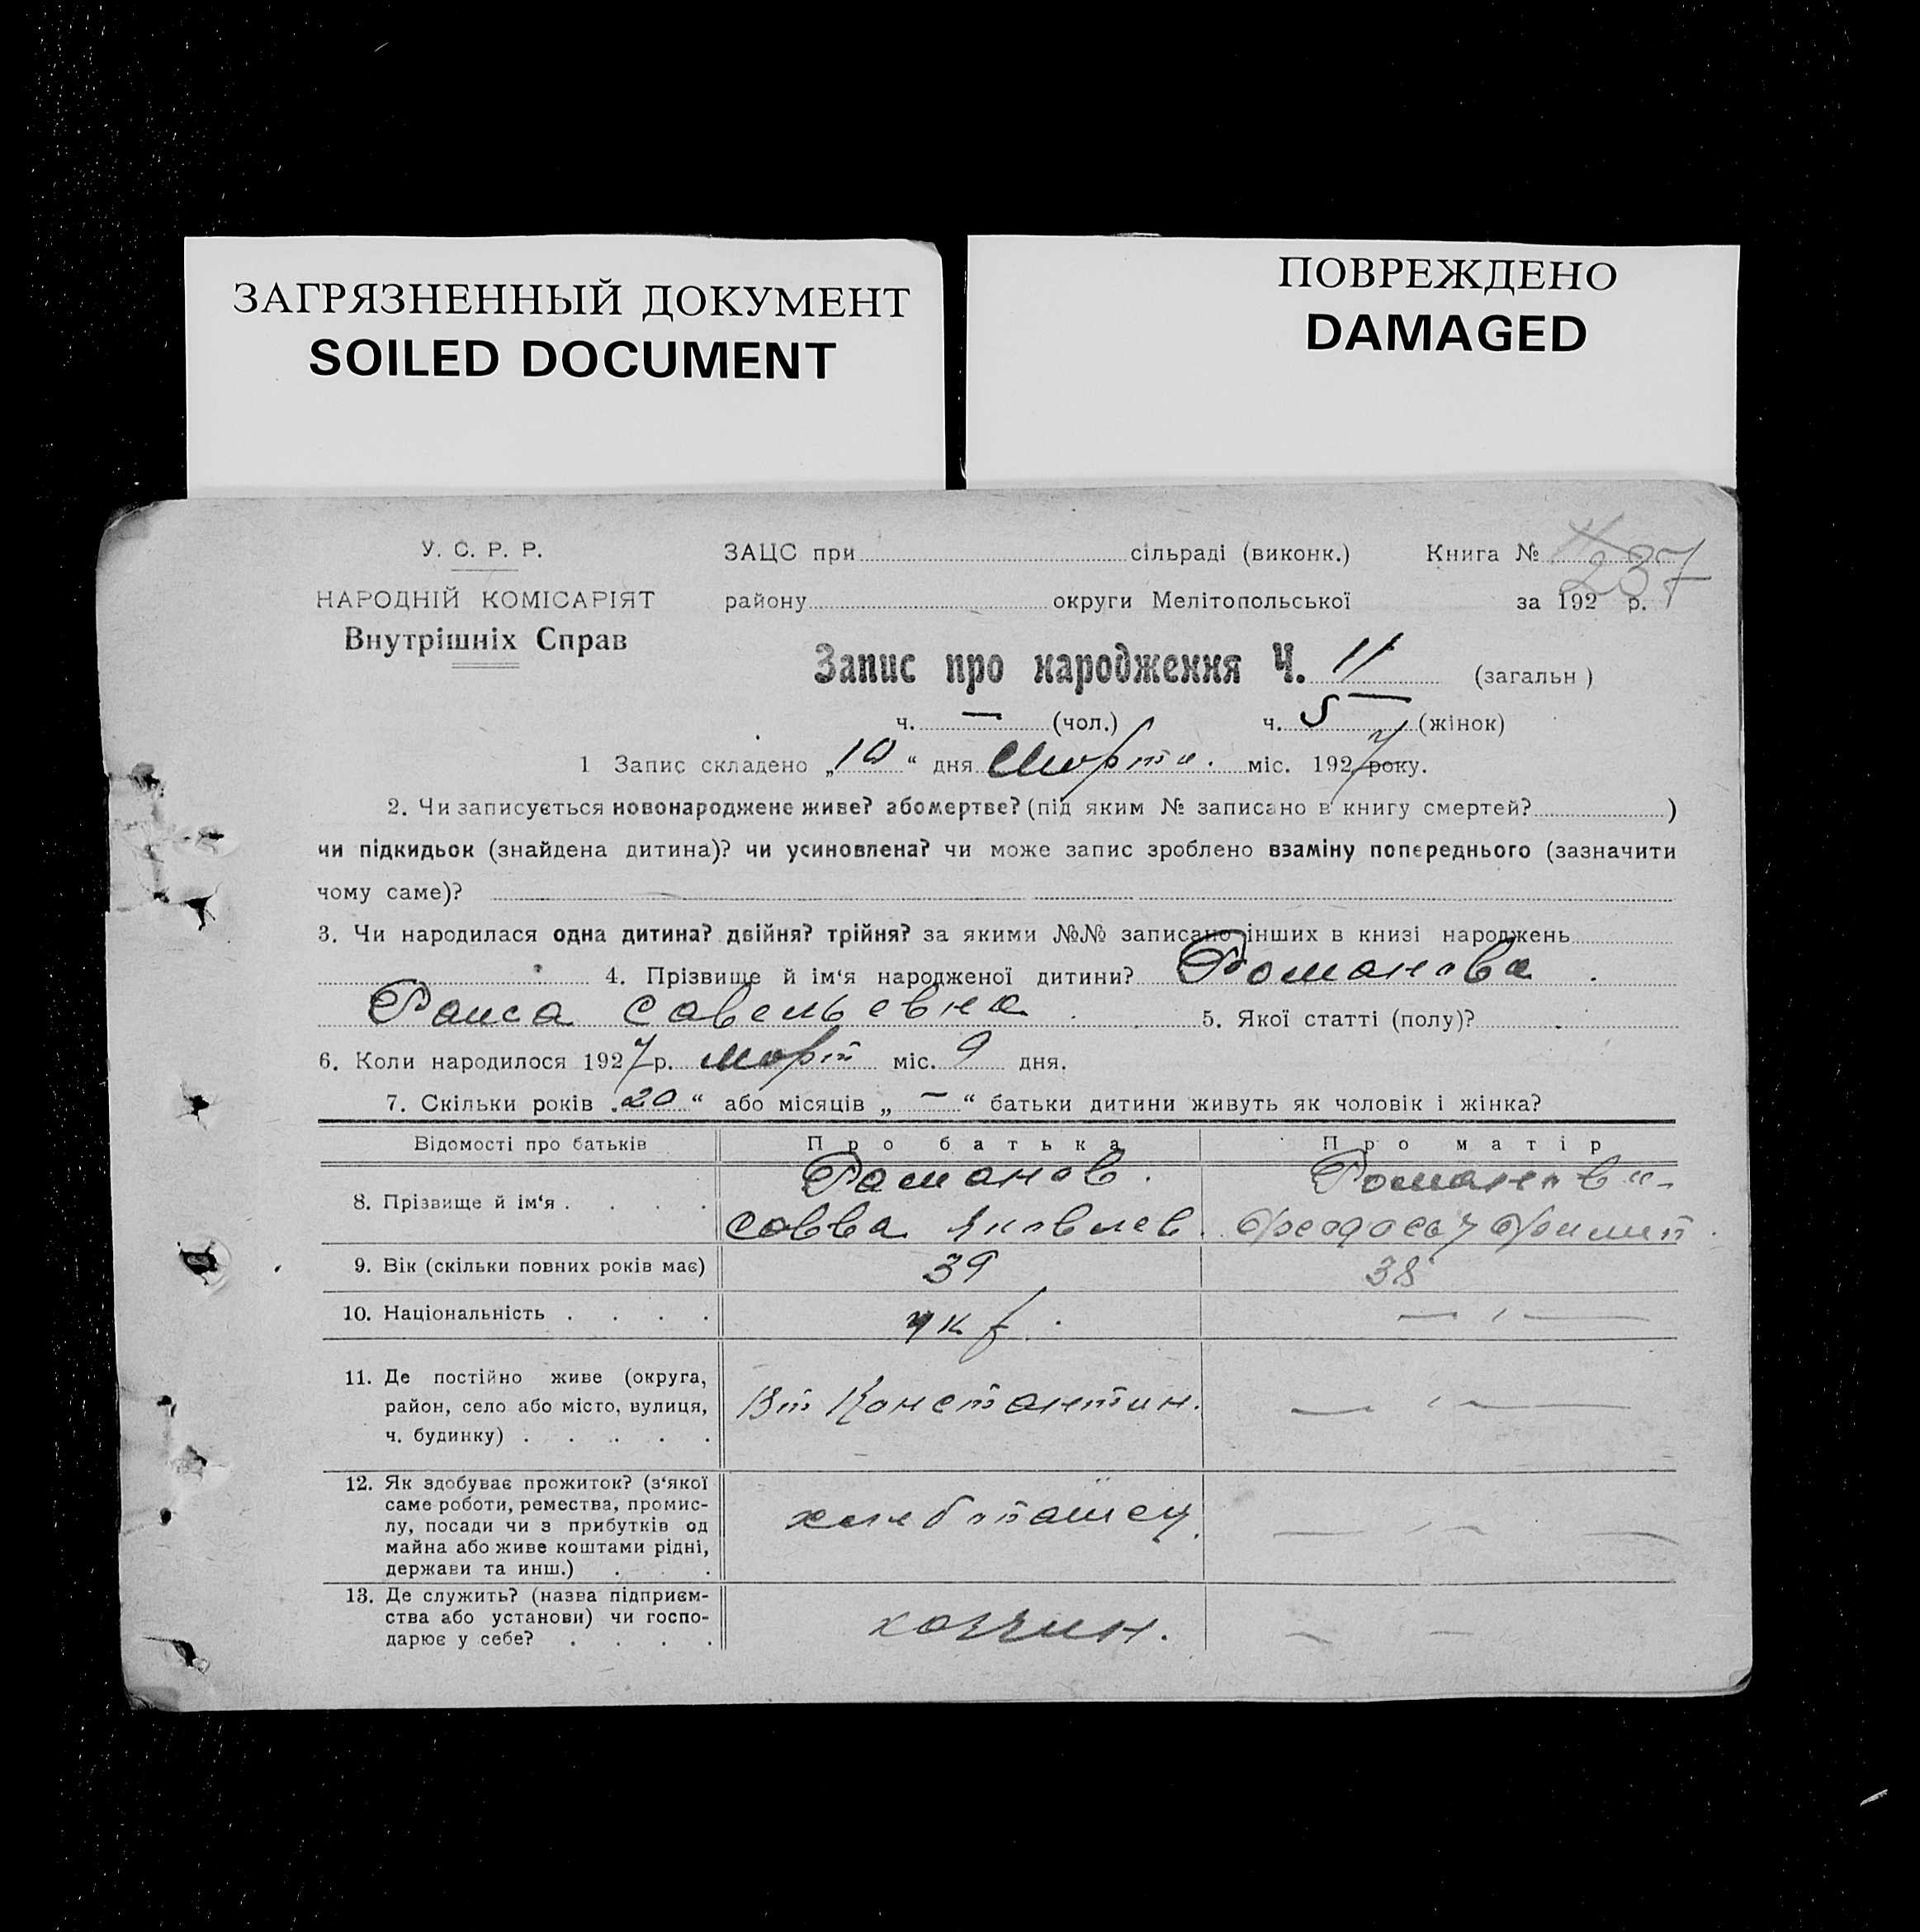 ЗАГРЯЗНЕННЫЙ ДОКУМЕНТ
SOILED DOCUMENT
ПОВРЕЖДЕНО
DAMAGED
У. С. Р. Р.
НАРОДНІЙ КОМІСАРІЯТ
Внутрішніх Справ
ЗАЦС при сільраді (виконк.) Книга №
237
району округи Мелітопольської за 192 р.
Запис про народження Ч. 11 (загальн)
ч. — (чол.) ч. 5 (жінок)
1 Запис складено „10“ дня Марта. міс. 1927 року.
2. Чи записується новонароджене живе? або мертве? (під яким № записано в книгу смертей? )
чи підкидьок (знайдена дитина)? чи усиновлена? чи може запис зроблено взаміну попереднього (зазначити
чому саме)?
3. Чи народилася одна дитина? двійня? трійня? за якими №№ записано інших в книзі народжень
4. Прізвище й ім‘я народженої дитини? Романова
Раиса Савельевна 5. Якої статті (полу)?
6. Коли народилося 1927 р. март міс. 9 дня.
7. Скільки років „20“ або місяців „—“ батьки дитини живуть як чоловік і жінка?
Відомості про батьків Про батька Про матір
8. Прізвище й ім‘я . . . . Романов. Романова
Савва Яковлев.
9. Вік (скільки повних років має) 39 38
10. Національність . . . . укр.
11. Де постійно живе (округа,
район, село або місто, вулиця,
ч. будинку) . . . . .
Вт Константин.
12. Як здобуває прожиток? (з‘якої
саме роботи, ремества, промис-
лу, посади чи з прибутків од
майна або живе коштами рідні,
держави та инш.) . . .
хлебопашец
13. Де служить? (назва підприєм-
ства або установи) чи госпо-
дарює у себе? . . . .